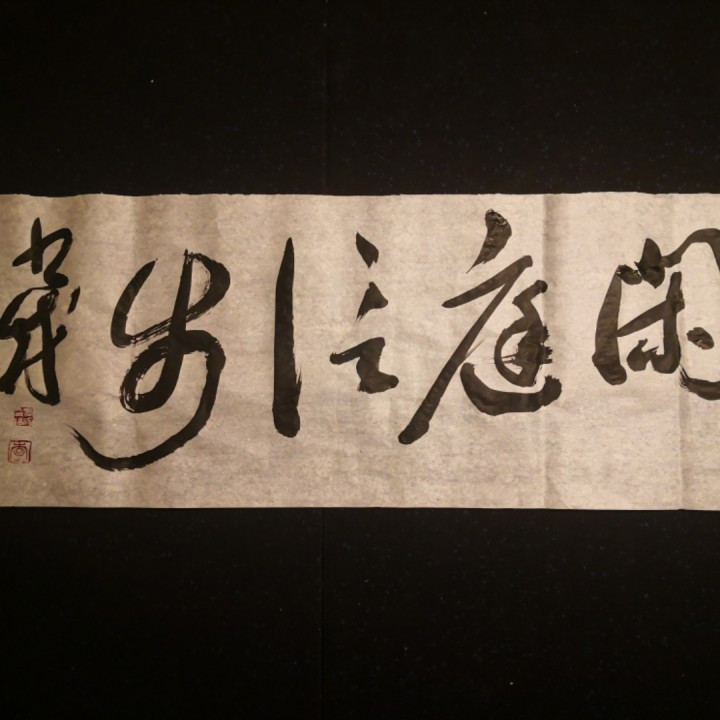 閑庭信步